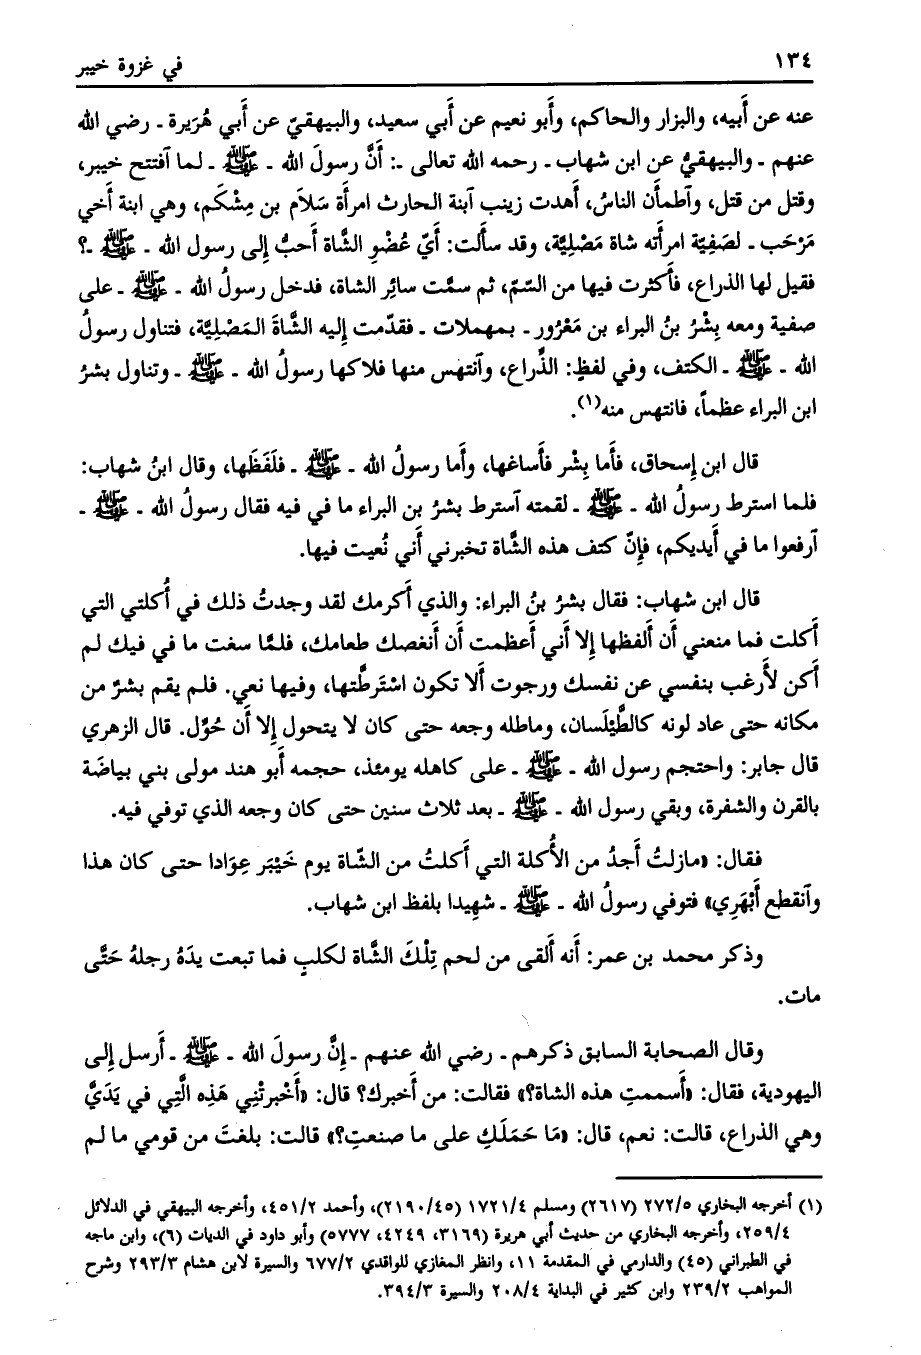 ١٣٤
في غزوة خيبر
عنه عن أَبيه، والبزار والحاكم، وأَبو نعيم عن أَبي سعيد، والبيهقيّ عن أَبي هُرَيرة ـ رضي الله
عنهم ـ والبيهقيُّ عن ابن شهاب ـ رحمه الله تعالى ـ: أَنَّ رسولَ الله ـ ﷺ ـ لما آفتتح خيبر،
وقتل من قتل، وآطمأَن الناسُ، أَهدت زينب آبنة الحارث امرأَة سَلاَم بن مِشْكَم، وهي ابنة أَخي
مَرْحَب ـ لصَفِيّة امرأَته شاة مَصْلِيَّة، وقد سأَلت: أَيّ عُضْوِ الشَّاة أَحبُّ إلى رسول الله ـ ﷺ ـ؟
فقيل لها الذراع، فأَكثرت فيها من السّمّ، ثم سمَّت سائِر الشاة، فدخل رسولُ الله ـ ﷺ ـ على
صفية ومعه بِشْرُ بنُ البراء بن مَعْرُور ـ بمهملات ـ فقدّمت إليه الشَّاةَ المَصْلِيَّة، فتناول رسولُ
الله ـ ﷺ ـ الكتف، وفي لفظٍ: الذِّراع، وآنتهس منها فلاكها رسولُ الله ـ ﷺ ـ وتناول بشرُ
ابن البراء عظماً، فانتهس منه(١).
قال ابن إسحاق، فأَما بِشْر فأَساغها، وأَما رسولُ الله ـ ﷺ ـ فلَفَظَها، وقال ابنُ شهاب:
فلما استرط رسولُ الله ـ ﷺ ـ لقمته آسترط بشرُ بن البراء ما في فيه فقال رسولُ الله ـ ﷺ ـ
آرفعوا ما في أَيديكم، فإِنّ كتف هذه الشَّاة تخبرني أَني نُعيت فيها.
قال ابن شهاب: فقال بشرُ بنُ البراء: والذي أَكرمك لقد وجدتُ ذلك في أُكلتي التي
أَكلت فما منعني أَن أَلفظها إِلا أَني أَعظمت أَن أَنغصك طعامك، فلمَّا سغت ما في فيك لم
أَكن لأَرغب بنفسي عن نفسك ورجوت أَلا تكون اسْتَرطَّتها، وفيها نعي. فلم يقم بشرٌ من
مكانه حتى عاد لونه كالطَّيْلَسان، وماطله وجعه حتى كان لا يتحول إِلا أَن حُوِّل. قال الزهري
قال جابر: واحتجم رسول الله ـ ﷺ ـ على كاهله يومئذ، حجمه أَبو هند مولى بني بياضَة
بالقرن والشفرة، وبقي رسول الله ـ ﷺ ـ بعد ثلاث سنين حتى كان وجعه الذي توفي فيه.
فقال: «مازلتُ أَجدُ من الأُكلة التي أَكلتُ من الشّاة يوم خَيْبَر عِوَادا حتى كان هذا
وآنقطع أَبْهَرِي» فتوفي رسولُ الله ـ ﷺ ـ شهِيدا بلفظ ابن شهاب.
وذكر محمد بن عمر: أَنه أَلقى من لحم تِلْكَ الشَّاة لكلبٍ فما تبعت يدَهُ رجلهُ حَتَّى
مات.
وقال الصحابة السابق ذكرهم ـ رضي الله عنهم ـ إِنَّ رسولَ الله ـ ﷺ ـ أَرسل إِلى
اليهودية، فقال: «أَسممتِ هذه الشاة؟» فقالت: من أَخبرك؟ قال: «أَخْبرتْنِي هَذِه الَّتِي في يَدَيَّ
وهي الذراع، قالت: نعم، قال: «مَا حَمَلَكِ على ما صنعتِ؟» قالت: بلغتَ من قومي ما لم
(١) أخرجه البخاري ٢٧٢/٥ (٢٦١٧) ومسلم ١٧٢١/٤ (٢١٩٠/٤٥)، وأحمد ٤٥١/٢، وأخرجه البيهقي في الدلائل
٢٥٩/٤، وأخرجه البخاري من حديث أبي هريرة (٣١٦٩، ٤٢٤٩، ٥٧٧٧) وأبو داود في الديات (٦)، وابن ماجه
في الطبراني (٤٥) والدارمي في المقدمة ١١، وانظر المغازي للواقدي ٦٧٧/٢ والسيرة لابن هشام ٢٩٣/٣ وشرح
المواهب ٢٣٩/٢ وابن كثير في البداية ٢٠٨/٤ والسيرة ٣٩٤/٣.